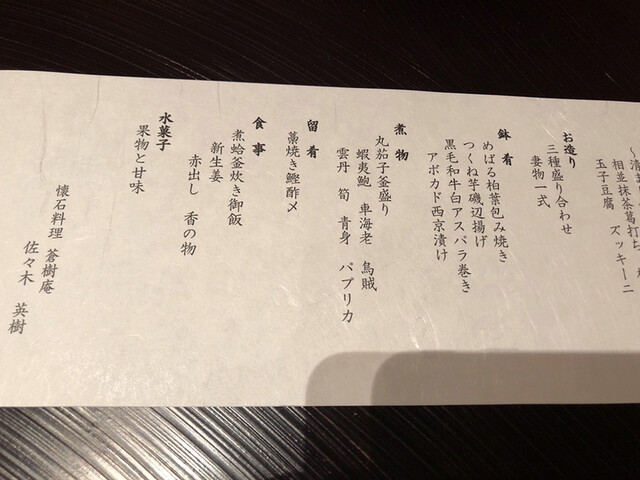 〜清
相並抹茶葛打ち
玉子豆腐 ズッキーニ
お造り
三種盛り合わせ
妻物一式
鉢肴
めばる柏葉包み焼き
つくね芋磯辺揚げ
黒毛和牛白アスパラ巻き
アボカド西京漬け
煮物
丸茄子釜盛り
蝦夷鮑 車海老 烏賊
雲丹 筍 青身 パプリカ
留肴
藁焼き鰹酢〆
食事
煮蛤釜炊き御飯
新生姜
赤出し 香の物
水菓子
果物と甘味
懐石料理 蒼樹庵
佐々木 英樹